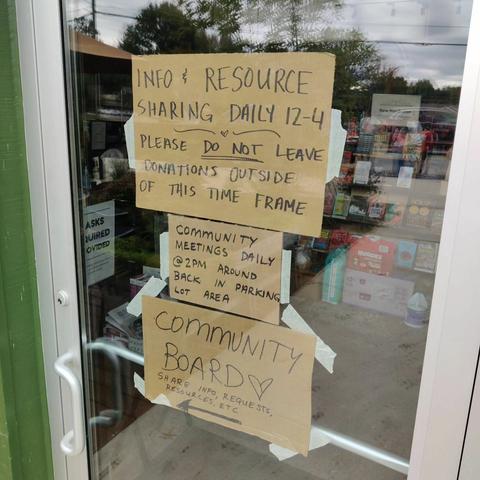 INFO & RESOURCE
SHARING DAILY 12-4
PLEASE DO NOT LEAVE
DONATIONS OUTSIDE
OF THIS TIME FRAME
COMMUNITY
MEETINGS DAILY
@2PM AROUND
BACK IN PARKING
LOT AREA
COMMUNITY
BOARD♡
SHARE INFO, REQUESTS,
RESOURCES, ETC
HUGGIES